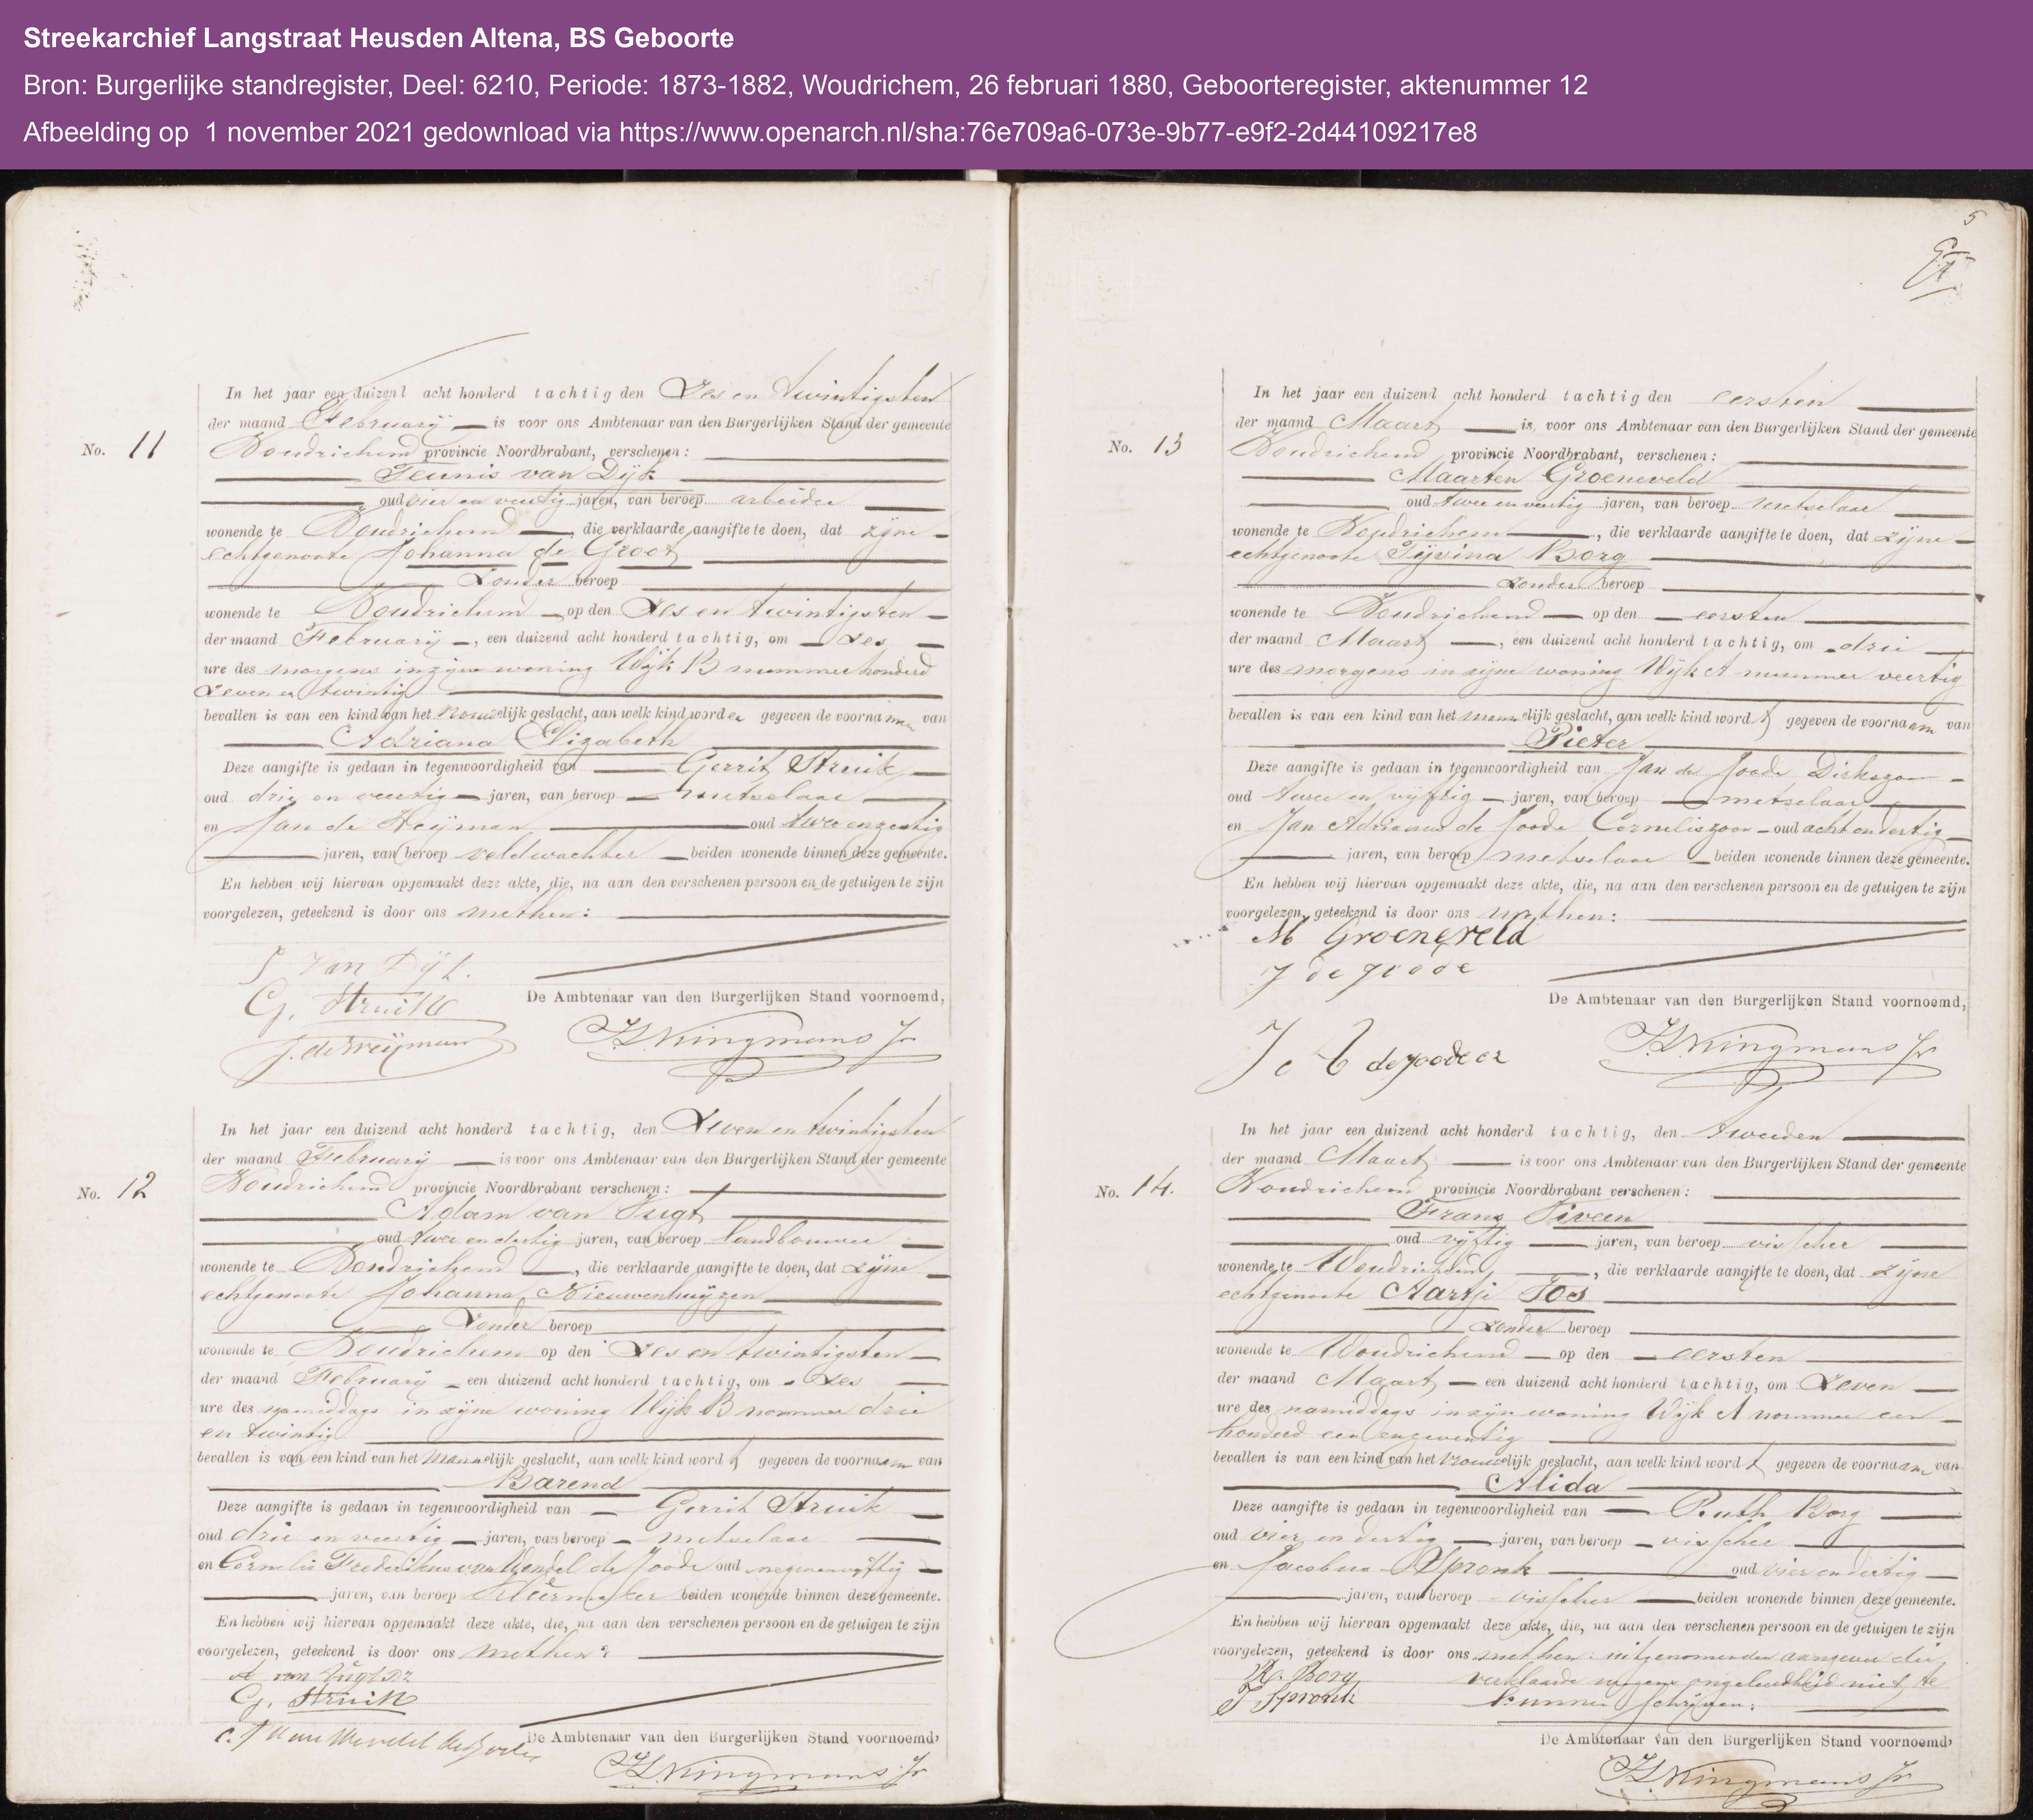 Streekarchief Langstraat Heusden Altena, BS Geboorte
Bron: Burgerlijke standregister, Deel: 6210, Periode: 1873-1882, Woudrichem, 26 februari 1880, Geboorteregister, aktenummer 12
Afbeelding op 1 november 2021 gedownload via https://www.openarch.nl/sha:76e709a6-073e-9b77-e9f2-2d44109217e8
In het jaar een duizend acht honderd tachtig den Zes en twintigsten
der maand February is voor ons Ambtenaar van den Burgerlijken Stand der gemeente
No. 11
Woudrichem provincie Noordbrabant, verschenen:
Teunis van Dijk
oud vier en veertig jaren, van beroep arbeider
wonende te Woudrichem, die verklaarde aangifte te doen, dat zijne
echtgenoote Johanna de Groot
Zonder beroep
wonende te Woudrichem op den Zes en twintigsten
der maand February, een duizend acht honderd tachtig, om Zes
ure des morgens in zijne woning Wijk B nummer honderd
Zeven en twintig
bevallen is van een kind van het Vrouwelijk geslacht, aan welk kind worden gegeven de voornamen van
Adriana Elizabeth
Deze aangifte is gedaan in tegenwoordigheid van Gerrit Struik
oud drie en veertig jaren, van beroep metselaar
en Jan de Weijman oud twee en zestig
jaren, van beroep veldwachter beiden wonende binnen deze gemeente.
En hebben wij hiervan opgemaakt deze akte, die, na aan den verschenen persoon en de getuigen te zijn
voorgelezen, geteekend is door ons met hen:
T van Dijk.
G. Struik
De Ambtenaar van den Burgerlijken Stand voornoemd,
J. de Weijman
Kingmans Jr
In het jaar een duizend acht honderd tachtig, den Zeven en twintigsten
der maand February is voor ons Ambtenaar van den Burgerlijken Stand der gemeente
No. 12
Woudrichem provincie Noordbrabant verschenen:
Adam van Vugt
oud twee en dertig jaren, van beroep landbouwer
wonende te Woudrichem, die verklaarde aangifte te doen, dat zijne
echtgenoote Johanna Nieuwenhuijzen
Zonder beroep
wonende te Woudrichem op den Zes en twintigsten
der maand February een duizend acht honderd tachtig, om Zes
ure des namiddags in zijne woning Wijk B nommer drie
en twintig
bevallen is van een kind van het Mannelijk geslacht, aan welk kind wordt gegeven de voornaam van
Barend
Deze aangifte is gedaan in tegenwoordigheid van Gerrit Struik
oud drie en veertig jaren, van beroep metselaar
en Cornelis Frederikus van Wendel de Joode oud negenenvijftig
jaren, van beroep beiden wonende binnen deze gemeente.
En hebben wij hiervan opgemaakt deze akte, die, na aan den verschenen persoon en de getuigen te zijn
voorgelezen, geteekend is door ons met hen:
A van Vugt
G. Struik
De Ambtenaar van den Burgerlijken Stand voornoemd,
Kingmans Jr
5
In het jaar een duizend acht honderd tachtig den eersten
der maand Maart is, voor ons Ambtenaar van den Burgerlijken Stand der gemeente
No. 13
Woudrichem provincie Noordbrabant, verschenen:
Maarten Groeneveld
oud twee en veertig jaren, van beroep metselaar
wonende te Woudrichem, die verklaarde aangifte te doen, dat zijne
echtgenoote Tijsina Borg
zonder beroep
wonende te Woudrichem op den eersten
der maand Maart, een duizend acht honderd tachtig, om drie
ure des morgens in zijne woning Wijk A nummer veertig
bevallen is van een kind van het mannelijk geslacht, aan welk kind wordt gegeven de voornaam van
Pieter
Deze aangifte is gedaan in tegenwoordigheid van Jan de Joode Dirkszoon
oud twee en vijftig jaren, van beroep metselaar
en Jan Adrianus de Joode Corneliszoon oud acht en dertig
jaren, van beroep metselaar beiden wonende binnen deze gemeente.
En hebben wij hiervan opgemaakt deze akte, die, na aan den verschenen persoon en de getuigen te zijn
voorgelezen, geteekend is door ons met hen:
M Groeneveld
J de Joode
De Ambtenaar van den Burgerlijken Stand voornoemd,
de Joode
Kingmans Jr
In het jaar een duizend acht honderd tachtig, den tweeden
der maand Maart is voor ons Ambtenaar van den Burgerlijken Stand der gemeente
No. 14.
Woudrichem provincie Noordbrabant verschenen:
Frans Viveen
oud vijftig jaren, van beroep visscher
wonende te Woudrichem, die verklaarde aangifte te doen, dat zijne
echtgenoote Aartje Vos
zonder beroep
wonende te Woudrichem op den eersten
der maand Maart een duizend acht honderd tachtig, om Zeven
ure des namiddags in zijn woning Wijk A nommer een
honderd een en zeventig
bevallen is van een kind van het Vrouwelijk geslacht, aan welk kind wordt gegeven de voornaam van
Alida
Deze aangifte is gedaan in tegenwoordigheid van Ruth Borg
oud vier en dertig jaren, van beroep visscher
en Jacobus Spronk oud vier en dertig
jaren, van beroep visscher beiden wonende binnen deze gemeente.
En hebben wij hiervan opgemaakt deze akte, die, na aan den verschenen persoon en de getuigen te zijn
voorgelezen, geteekend is door ons met hen: uitgenomen den aangever die
R. Borg verklaarde wegens ongeleerdheid niet te
J Spronk kunnen schrijven:
De Ambtenaar van den Burgerlijken Stand voornoemd,
Kingmans Jr